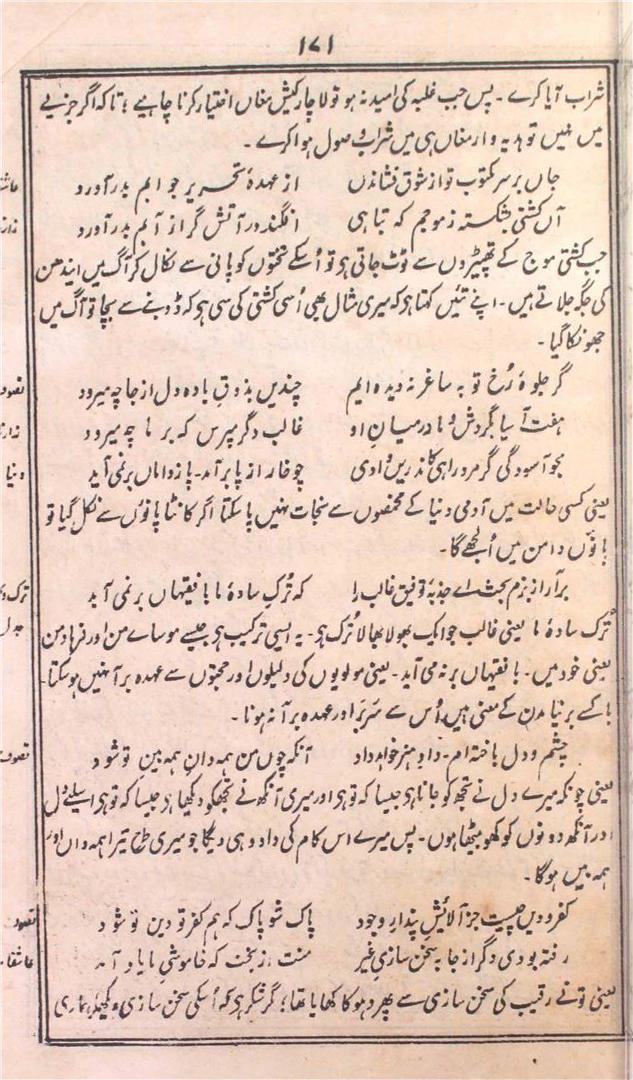 ۱۷۱
شراب آیا کرے ۔ پس جب غلبہ کی امید نہ ہو تو لاچار کیش مغاں اختیار کرنا چاہیے ؛ تاکہ اگر جزیے
میں نہیں تو ہدیہ و ارمغاں ہی میں شراب وصول ہوا کرے ۔
جاں بر سر مکتوب تو از شوق فشاندن از عہدۂ تحریر جوابم بدر آورد
آں کشتی بشکستہ ز موجم کہ تباہی افگند در آتش گر از آبم بدر آورد
جب کشتی موج کے تھپیڑوں سے ٹوٹ جاتی ہو تو اُسکے تختوں کو پانی سے نکال کر آگ میں ایندھن
کی جگہ جلاتے ہیں ۔ اپنے تئیں کہتا ہو کہ میری مثال بھی اُسی کشتی کی سی ہو کہ ڈوبنے سے بچا تو آگ میں
جھونکا گیا ۔
گر جلوۂ رُخ تو بہ ساغر نہ دیدہ ایم چندیں بذوقِ بادہ دل از جا چہ میرود
ہفت آسیا بگردش و ما درمیانِ او غالب دگر مپرس کہ بر ما چہ میرود
مجو آسودگی گر مرد راہی کاندریں وادی چو خار از پا برآمد ۔ پا ز داماں بر نمی آید
یعنی کسی حالت میں آدمی دنیا کے مخمصوں سے نجات نہیں پا سکتا اگر کانٹا پانوں سے نکل گیا تو
پانوں دامن میں اُلجھے گا ۔
برآر از بزم بحث اے جذبۂ توفیق غالب را کہ تُرکِ سادۂ ما با فقیہاں بر نمی آید
تُرک سادۂ ما یعنی غالب جو ایک بھولا بھالا تُرک ہو ۔ یہ ایسی ترکیب ہو جیسے موسائے من اور فرہاد من
یعنی خود میں ۔ با فقیہاں بر نہ می آید ۔ یعنی مولویوں کی دلیلوں اور حجتوں سے عہدہ برآ نہیں ہو سکتا ۔
باکسے بر نیامدن کے معنی ہیں اُس سے سربر اور عہدہ برآ نہ ہونا ۔
چشم و دل باختہ ام ۔ داد ہنر خواہد داد آنکہ چوں من ہمہ دان و ہمہ بین تو شود
یعنی چونکہ میرے دل نے تجھ کو جانا ہو جیسا کہ تو ہو اور میری آنکھ نے تجھکو دیکھا ہو جیسا کہ تو ہو اسلیے دل
اور آنکھ دونوں کو کھو بیٹھا ہوں ۔ پس میرے اس کام کی داد وہی دیگا جو میری طرح تیرا ہمہ داں اور
ہمہ بیں ہوگا ۔
کفر و دیں چیست جز آلائشِ پندارِ وجود پاک شو پاک کہ ہم کفر تو دین تو شود
رفتہ بودی دگر از جا بہ سخن سازیِ غیر منت از بخت کہ خاموشیِ ما یاد آمد
یعنی تو نے رقیب کی سخن سازی سے پھر دھوکا کھایا تھا ؛ گر شکر ہو کہ اُسکی سخن سازی دیکھکر ہماری
تصوف
تصوف
تصوف